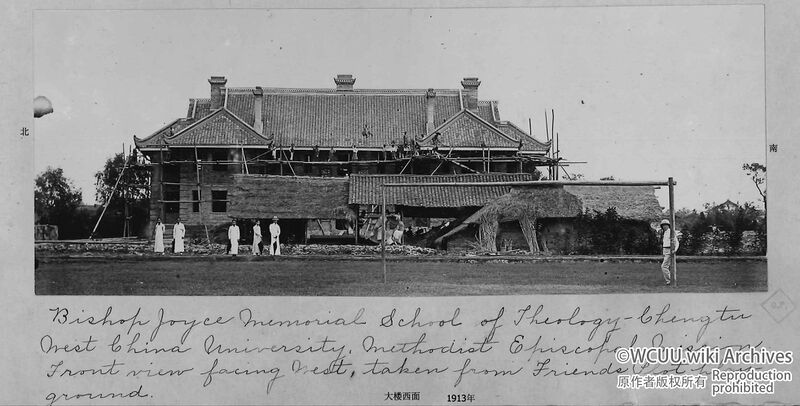 北
南
Bishop Joyce Memorial School of Theology - Chengtu
West China University, Methodist Episcopal Mission
Front view facing West, taken from Friends' foot ball
ground.
©WCUU.wiki Archives
原作者版权所有 Reproduction
prohibited
大楼西面 1913年